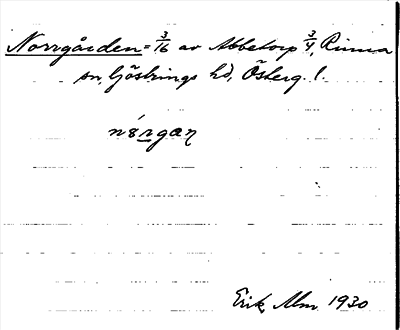 Norrgården = 3/16 av Abbetorp 3/4, Rinna
sn, Göstrings hd, Österg. l.
nǿrgaɳ
Erik Alm 1930